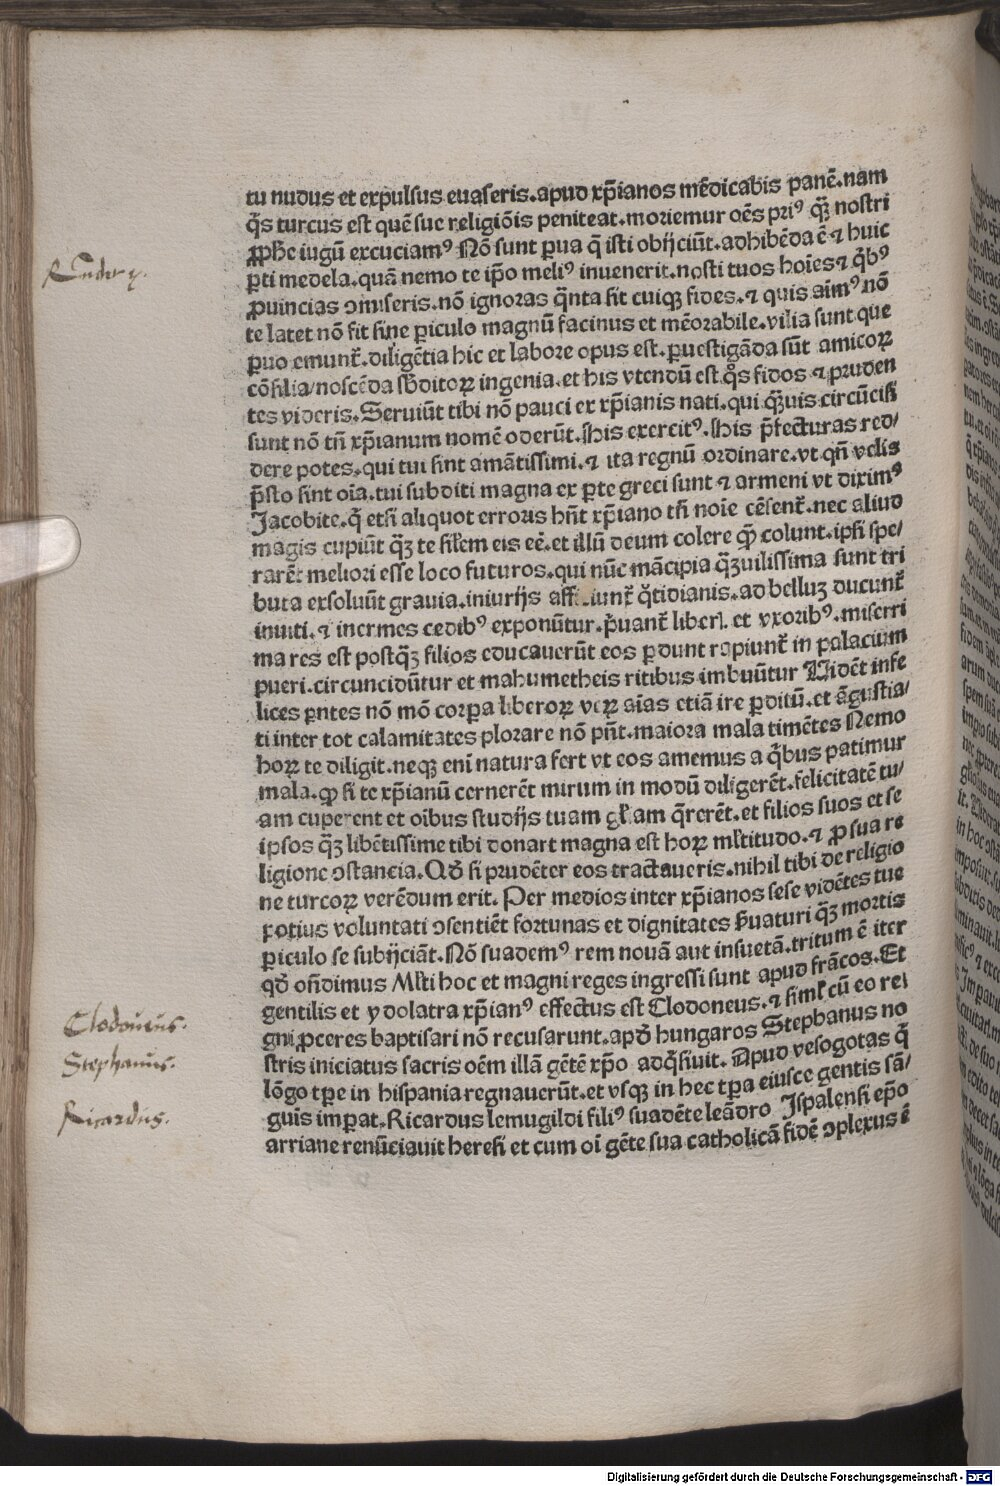 tu nudus et expulsus euaseris. apud xp̄ianos mēdicabis panē. nam
q̄s turcus est quē sue religiōis peniteat. moriemur oēs priꝰ qꝫ̄ nostri
ꝓphe iugū excuciamꝰ Nō sunt ꝑua q̄ isti obijciūt. adhibēda ē ⁊ huic
ꝑti medela. quā nemo te ip̄o meliꝰ inuenerit. nosti tuos hoīes ⁊ q̄bꝰ
ꝓuincias ↄmiseris. nō ignoras q̄nta sit cuiqꝫ fides. ⁊ quis aīmꝰ nō
te latet nō fit sine ꝑiculo magnū facinus et mēorabile. vilia sunt que
ꝑuo emunt᷑. diligētia hic et labore opus est. ꝑuestigāda sūt amicoꝝ
cōsilia/ noscēda sb̄ditoꝝ ingenia. et his vtendū est q̄s fidos ⁊ pruden
tes videris. Seruiūt tibi nō pauci ex xp̄ianis nati. qui qꝫ̄uis circūcisi
sunt nō tn̄ xp̄ianum nomē oderūt. his exercitꝰ. his p̄fecturas red/
dere potes. qui tui sint amātissimi. ⁊ ita regnū ordinare. vt qn̄ velis
p̄sto sint oīa. tui subditi magna ex ꝑte greci sunt ⁊ armeni vt diximꝰ
Jacobite. q̄ etsi aliquot erroris hn̄t xp̄iano tn̄ noīe cēsent᷑. nec aliud
magis cupiūt qꝫ̄ te sil̄em eis eē. et illū deum colere quē colunt. ipsi spe/
rarēt meliori esse loco futuros. qui nūc mācipia qꝫ̄ vilissima sunt tri
buta exsoluūt grauia. iniurijs aff iunt᷑ q̄tidianis. ad belluꝫ ducunt᷑
inuiti. ⁊ inermes cedibꝰ exponūtur. p̄uant᷑ liberl. et vxoribꝰ. miserri
ma res est postqꝫ̄ filios educauerūt eos ꝑdunt rapiunt᷑ in palacium
pueri. circuncidūtur et mahumetheis ritibus imbuūtur Vidēt infe
lices pn̄tes nō mō corꝑa liberoꝝ veꝝ aīas etiā ire ꝑditū. et āgustia/
ti inter tot calamitates plorare nō pn̄t. maiora mala timētes Nemo
hoꝝ te diligit. neqꝫ eni natura fert vt eos amemus a q̄bus patimur
mala. ꝙ si te xp̄ianū cernerēt mirum in modū diligerēt. felicitatē tu/
am cuperent et oībus studijs tuam gl̄iam q̄rerēt. et filios suos et se
ipsos qꝫ̄ libētissime tibi donarēt magna est hoꝝ ml̄titudo. ⁊ ꝓ sua re
ligione ↄstancia. Qd̄ si prudēter eos tractaueris. nihil tibi de religio
ne turcoꝝ verēdum erit. Per medios inter xp̄ianos sese vidētes tue
potius voluntati ↄsentiēt fortunas et dignitates ẜuaturi qꝫ̄ mortis
ꝑiculo se subijciāt. Nō suademꝰ rem nouā aut insuetā. tritum ē iter
qd̄ oñdimus Ml̄ti hoc et magni reges ingressi sunt apud frācos. Et
gentilis et ydolatra xp̄ianꝰ effectus est Clodoneus. ⁊ siml̄ cū eo rei
gni ꝓceres baptisari nō recusarunt. apd̄ hungaros Stephanus no
stris iniciatus sacris oēm illā gētē xp̄o adq̄siuit. Apud vesogotas q̄
lōgo tꝑe in hispania regnauerūt. et vsqꝫ in hec tꝑa eiusce gentis sā/
guis imꝑat. Ricardus lemugildi filiꝰ suadēte leādro Jspalensi ep̄o
arriane renūciauit heresi et cum oī gēte sua catholicā fidē ↄplexus ē
Clodoueus.
Stephanus.
Ricardus.
Digitalisierung gefördert durch die Deutsche Forschungsgemeinschaft - DFG